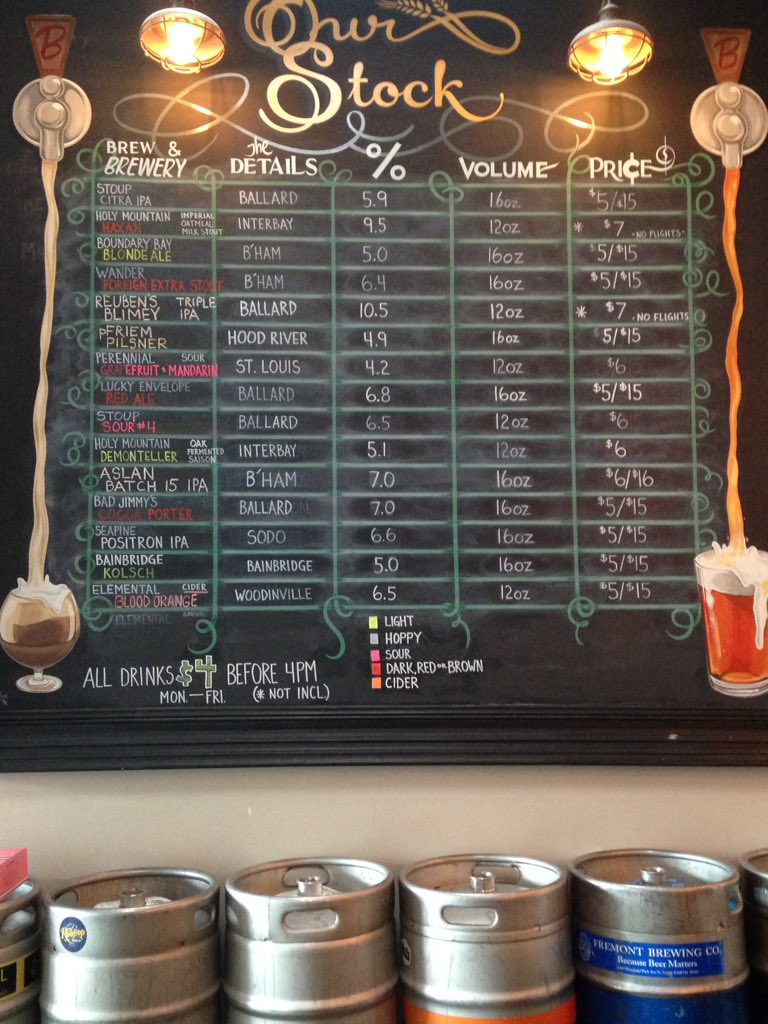 B
B
Our
Stock
BREW & BREWERY The DETAILS % VOLUME PRI¢E
STOUP CITRA IPA BALLARD 5.9 16oz $5/$15
HOLY MOUNTAIN HAXAN IMPERIAL OATMEAL MILK STOUT INTERBAY 9.5 12oz * $7 -NO FLIGHTS-
BOUNDARY BAY BLONDE ALE B'HAM 5.0 16oz $5/$15
WANDER FOREIGN EXTRA STOUT B'HAM 6.4 16oz $5/$15
REUBEN'S BLIMEY TRIPLE IPA BALLARD 10.5 12oz * $7 -NO FLIGHTS
pFRIEM PILSNER HOOD RIVER 4.9 16oz $5/$15
PERENNIAL SOUR GRAPEFRUIT + MANDARIN ST. LOUIS 4.2 12oz $6
LUCKY ENVELOPE RED ALE BALLARD 6.8 16oz $5/$15
STOUP SOUR #4 BALLARD 6.5 12oz $6
HOLY MOUNTAIN DEMONTELLER OAK FERMENTED SAISON INTERBAY 5.1 12oz $6
ASLAN BATCH 15 IPA B'HAM 7.0 16oz $6/$16
BAD JIMMY'S COCOA PORTER BALLARD 7.0 16oz $5/$15
SEAPINE POSITRON IPA SODO 6.6 16oz $5/$15
BAINBRIDGE KOLSCH BAINBRIDGE 5.0 16oz $5/$15
ELEMENTAL CIDER BLOOD ORANGE WOODINVILLE 6.5 12oz $5/$15
ELEMENTAL
LIGHT
HOPPY
SOUR
DARK, RED OR BROWN
CIDER
ALL DRINKS $4 BEFORE 4PM
MON.—FRI. (* NOT INCL.)
FREMONT BREWING CO.
Because Beer Matters